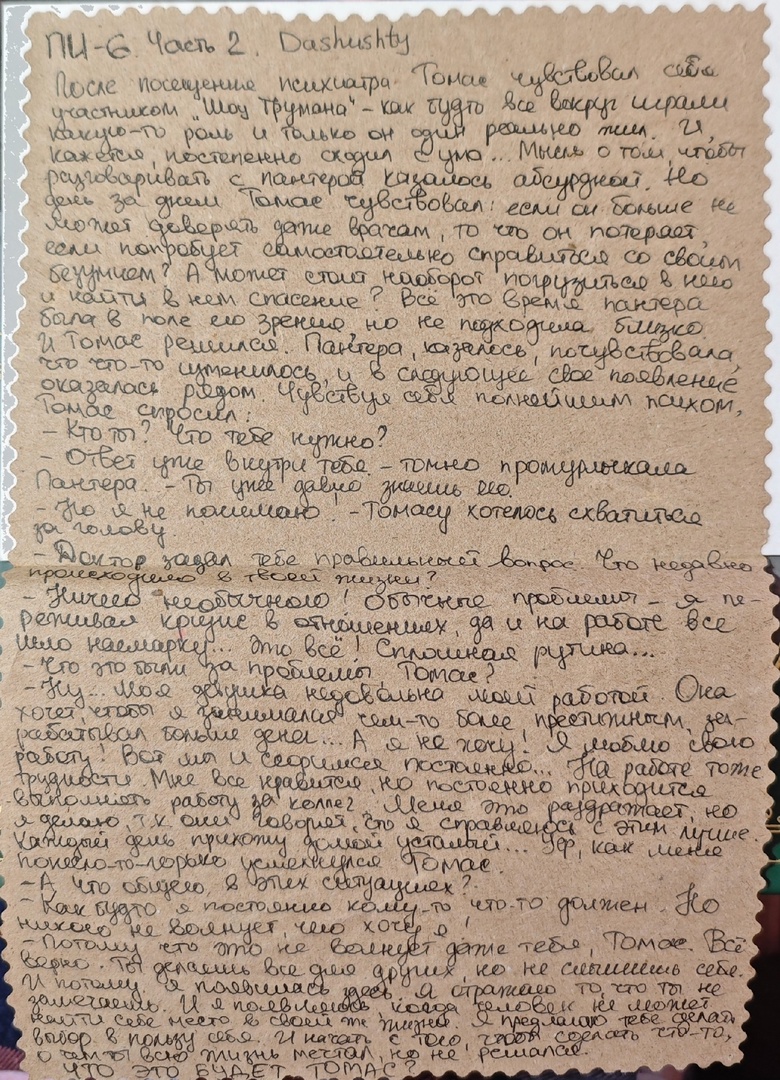 ПИ-6. Часть 2. Dashushty
После посещение психиатра Томас чувствовал себя
участником "Шоу Трумана" - как будто все вокруг играли
какую-то роль и только он один реально жил. И,
кажется, постепенно сходил с ума... Мысль о том, чтобы
разговаривать с пантерой казалось абсурдной. Но
день за днем Томас чувствовал: если он больше не
может доверять даже врачам, то что он потеряет,
если попробует самостоятельно справиться со своим
безумием? А может стоит наоборот погрузиться в него
и найти в нем спасение? Всё это время пантера
была в поле его зрения, но не подходила близко.
И Томас решился. Пантера, казалось, почувствовала,
что что-то изменилось, и в следующее свое появление
оказалась рядом. Чувствуя себя полнейшим психом,
Томас спросил:
- Кто ты? Что тебе нужно?
- Ответ уже внутри тебя - томно промурлыкала
Пантера. - Ты уже давно знаешь его.
- Но я не понимаю! - Томасу хотелось схватиться
за голову.
- Доктор задал тебе правильный вопрос. Что недавно
происходило в твоей жизни?
- Ничего необычного! Обычные проблемы - я пе-
реживал кризис в отношениях, да и на работе все
шло насмарку... Это всё! Сплошная рутина...
- Что это были за проблемы, Томас?
- Ну... Моя девушка недовольна моей работой. Она
хочет, чтобы я занимался чем-то более престижным, за-
рабатывал больше денег... А я не хочу! Я люблю свою
работу! Вот мы и ссоримся постоянно... На работе тоже
трудности. Мне все нравится, но постоянно приходится
выполнять работу за коллег. Меня это раздражает, но
я делаю, т.к. они говорят, что я справляюсь с этим лучше.
Каждый день прихожу домой усталый... Уф, как меня
понесло - горько усмехнулся Томас.
- А что общего в этих ситуациях?
- Как будто я постоянно кому-то что-то должен. Но
никого не волнует, чего хочу я!
- Потому что это не волнует даже тебя, Томас. Всё
верно. Ты делаешь все для других, но не слышишь себя.
И потому я появилась здесь. Я отражаю то, что ты не
замечаешь. И я появляюсь, когда человек не может
найти себе место в своей же жизни. Я предлагаю тебе сделать
выбор в пользу себя. И начать с того, чтобы сделать что-то,
о чем ты всю жизнь мечтал, но не решался.
ЧТО ЭТО БУДЕТ ТОМАС?